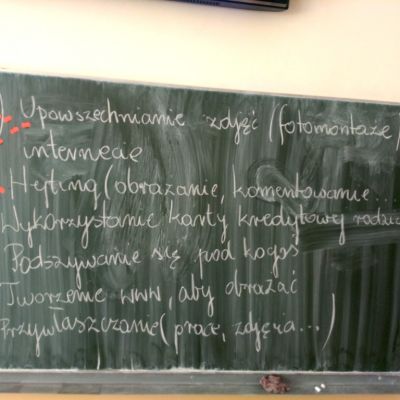 ) Upowszechnianie zdjęć (fotomontaże)
internecie
Hefting (obrażanie, komentowanie...
Wykorzystanie karty kredytowej
Podszywanie się pod kogoś
Tworzenie www, aby obrażać
Przywłaszczanie (prace, zdjęcia...)